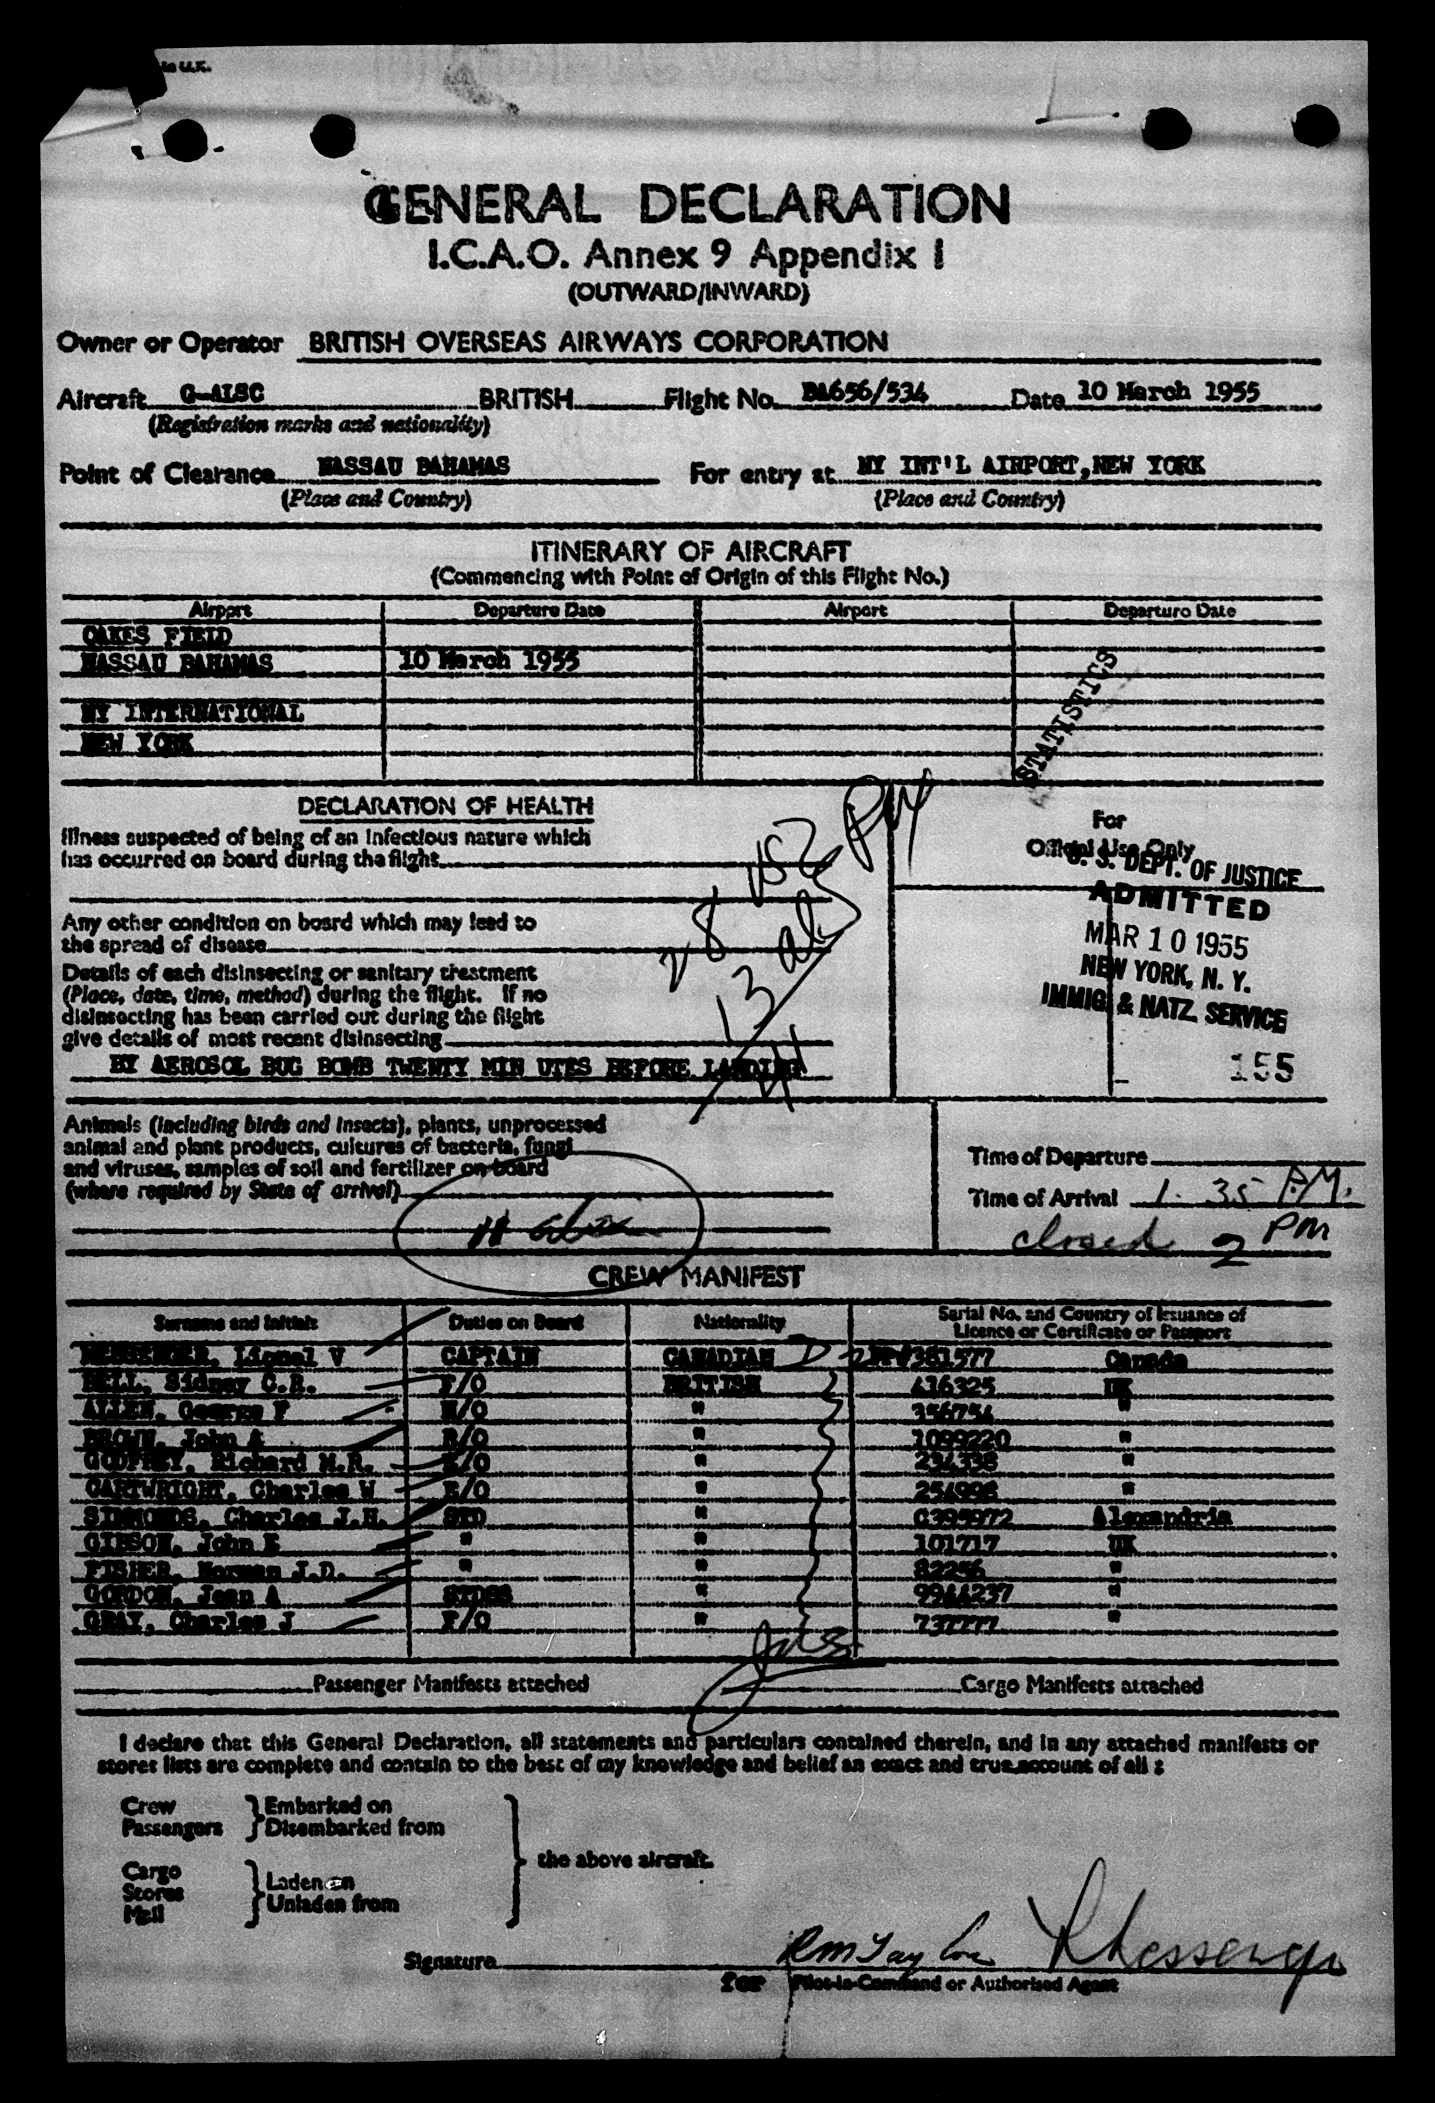 in U.K.
GENERAL DECLARATION
I.C.A.O. Annex 9 Appendix 1
(OUTWARD/INWARD)
Owner or Operator BRITISH OVERSEAS AIRWAYS CORPORATION
Aircraft G-ALSC BRITISH Flight No. BA656/534 Date 10 March 1955
(Registration marks and nationality)
Point of Clearance NASSAU BAHAMAS For entry at NY INT'L AIRPORT, NEW YORK
(Place and Country) (Place and Country)
ITINERARY OF AIRCRAFT
(Commencing with Point of Origin of this Flight No.)
Airport Departure Date Airport Departure Date
OAKES FIELD
NASSAU BAHAMAS 10 March 1955
NY INTERNATIONAL
NEW YORK
STATISTICS
DECLARATION OF HEALTH
Illness suspected of being of an infectious nature which
has occurred on board during the flight
For
Official Use Only
U. S. DEPT. OF JUSTICE
ADMITTED
MAR 10 1955
NEW YORK, N. Y.
IMMIG. & NATZ. SERVICE
155
28 USC
13 al
Any other condition on board which may lead to
the spread of disease
Details of each disinsecting or sanitary treatment
(Place, date, time, method) during the flight. If no
disinsecting has been carried out during the flight
give details of most recent disinsecting
BY AEROSOL BUG BOMB TWENTY MIN UTES BEFORE LANDING
Animals (including birds and insects), plants, unprocessed
animal and plant products, cultures of bacteria, fungi
and viruses, samples of soil and fertilizer on board
(where required by State of arrival)
Time of Departure
Time of Arrival 1.35 P.M.
closed 2 PM
CREW MANIFEST
Surname and Initials Duties on Board Nationality Serial No. and Country of Issuance of
Licence or Certificate or Passport
MESSENGER, Lionel V CAPTAIN CANADIAN PP#381577 Canada
BELL, Sidney C.R. F/O BRITISH 416325 UK
ALLEN, George F N/O " 356754 "
BROWN, John A R/O " 1099220 "
GODFREY, Richard M.R. E/O " 234338 "
CARTWRIGHT, Charles W E/O " 254998 "
SIMMONDS, Charles J.H. STD " C395972 Alexandria
GIBSON, John E " " 101717 UK
FISHER, Norman J.D. " " 82256 "
GORDON, Jean A STDSS " 9944237 "
GRAY, Charles J F/O " 737777 "
Passenger Manifests attached Cargo Manifests attached
I declare that this General Declaration, all statements and particulars contained therein, and in any attached manifests or
stores lists are complete and contain to the best of my knowledge and belief an exact and true account of all :
Crew Embarked on
Passengers Disembarked from
the above aircraft.
Cargo
Stores Laden on
Mail Unladen from
Signature RM Taylor Messenger
for Pilot-in-Command or Authorised Agent